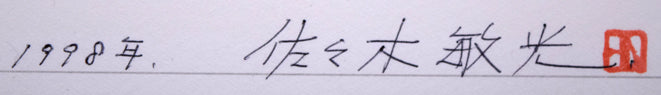 1998年. 佐々木敏光